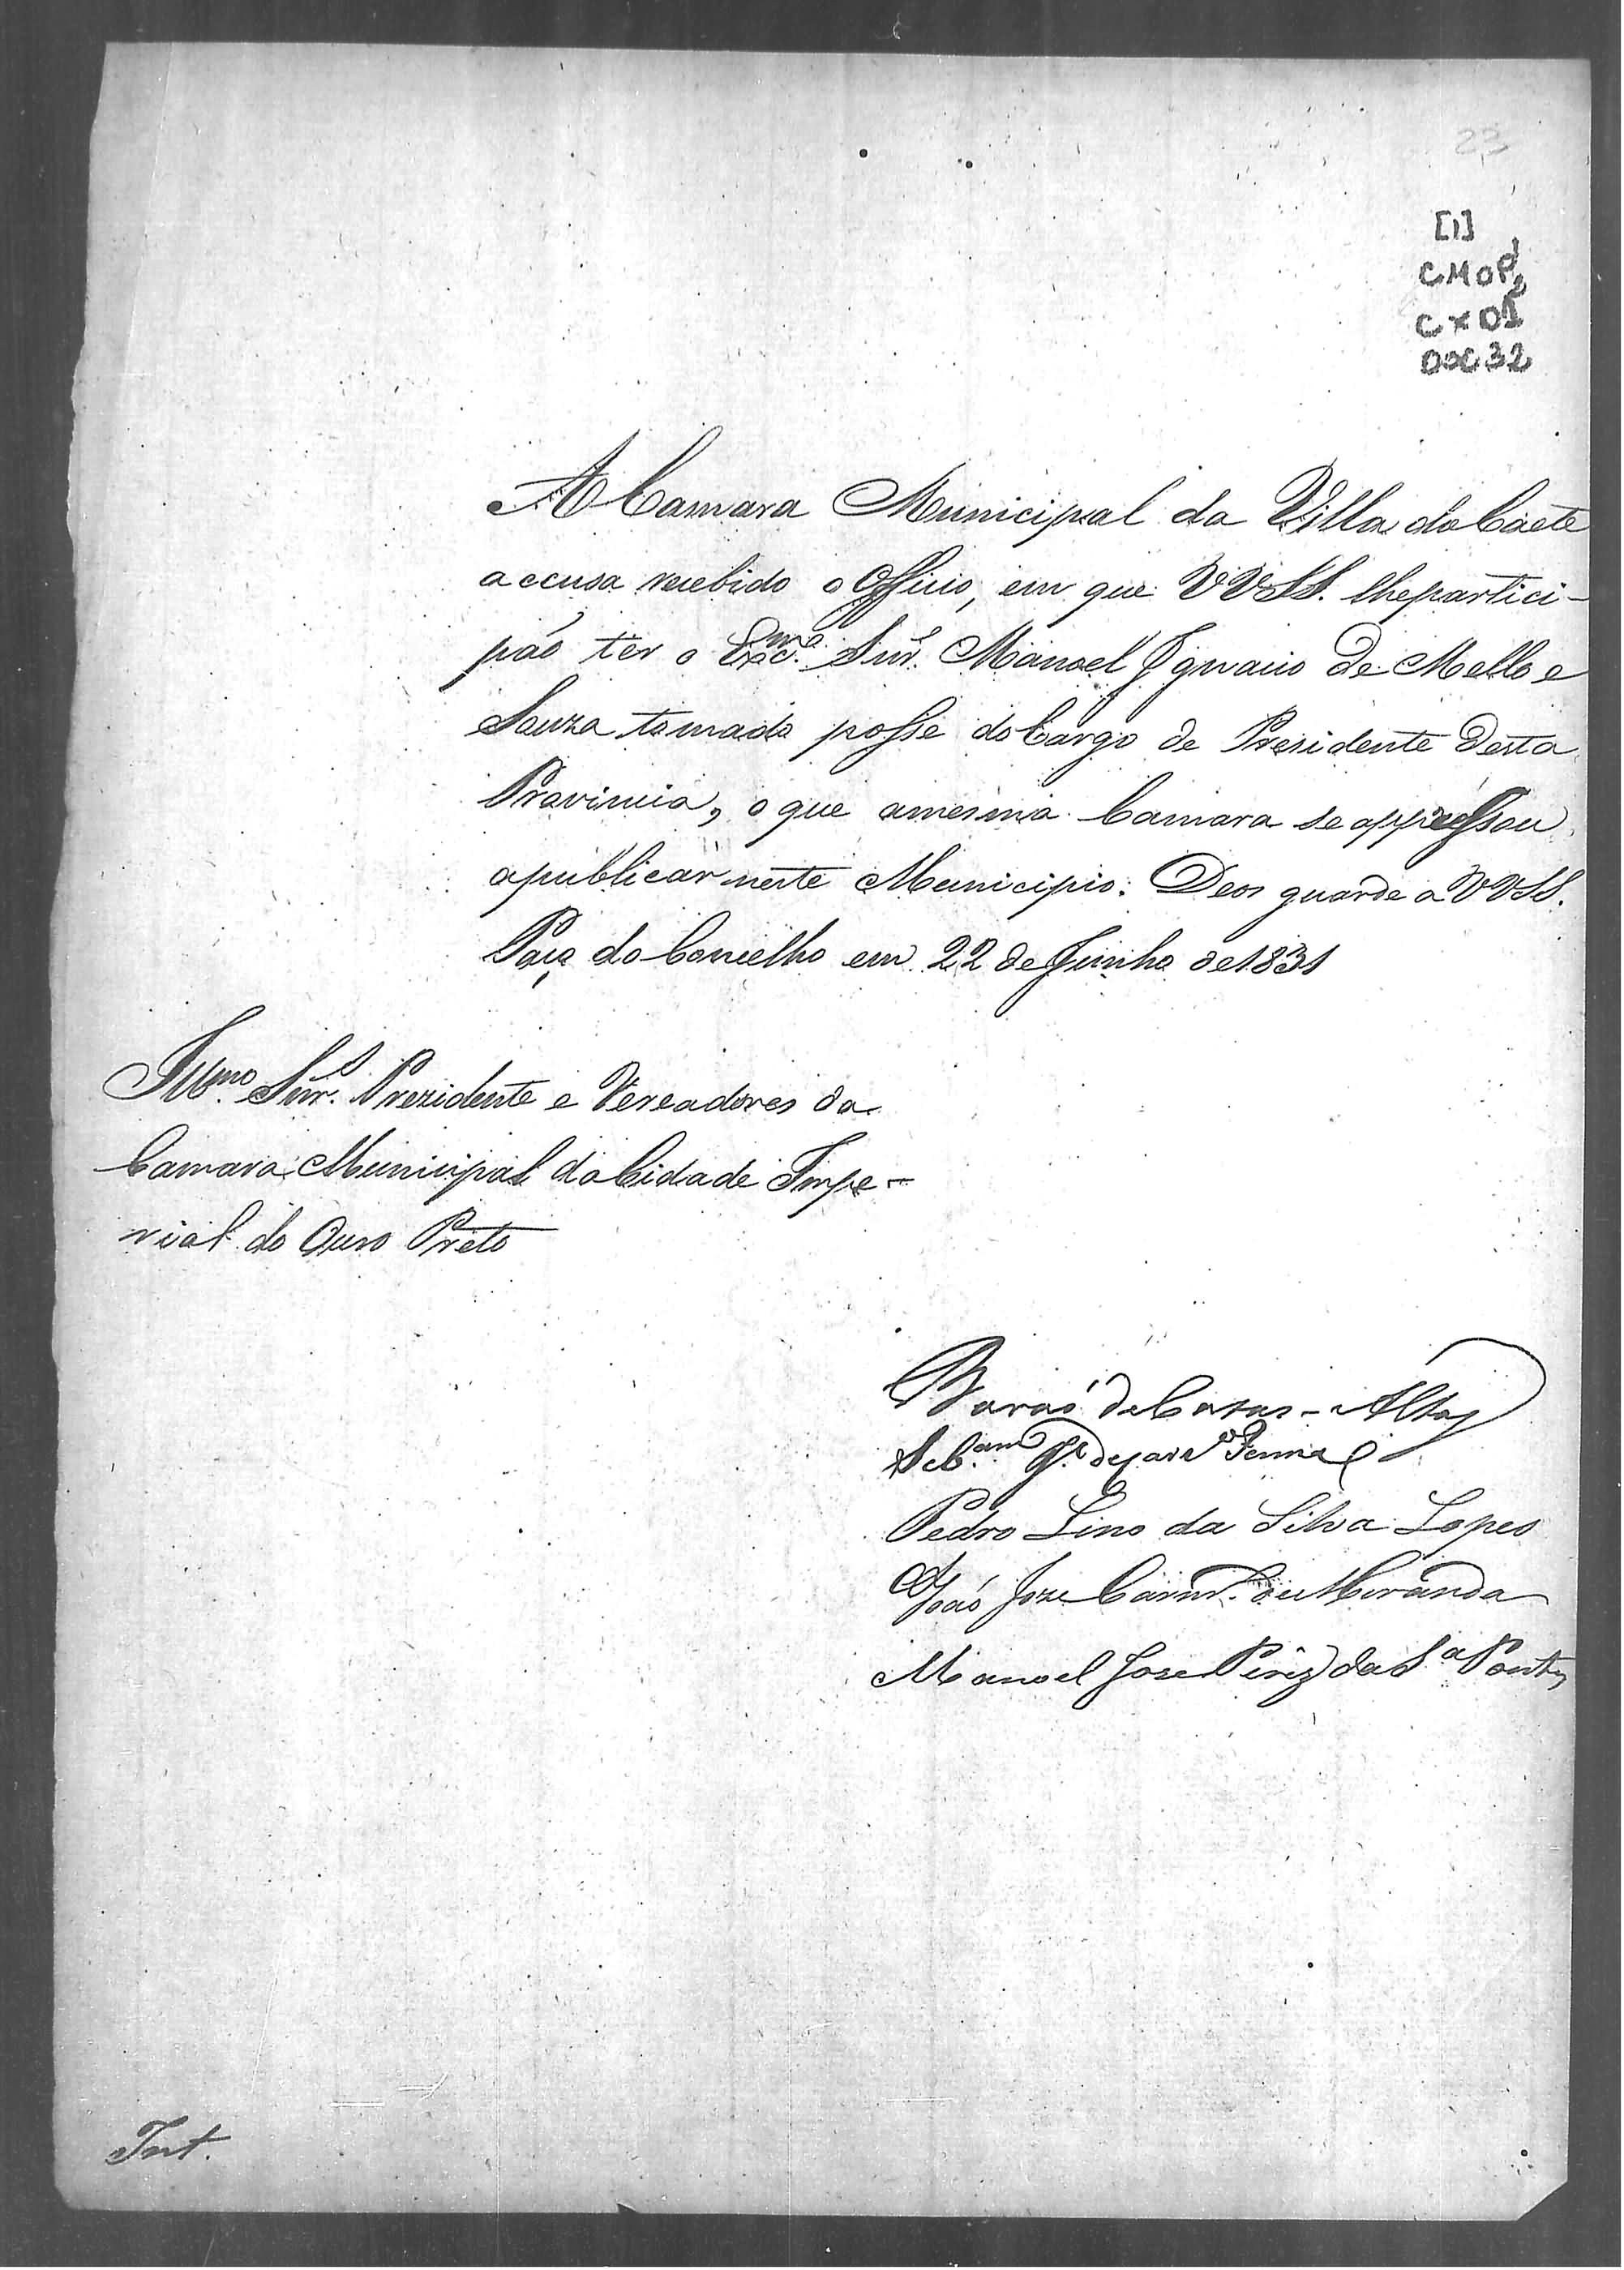 23
[1]
CMOP,
CX01
DOC32
A Camara Municipal da Villa do Caeté
accusa recebido o Officio, em que VVSS. lhe partici-
páo ter o Exc.mo Snr. Manoel Ignacio de Mello e
Souza tomado posse do Cargo de Presidente desta
Provincia, o que amesma Camara se appressou
apublicar neste Municipio. Deos guarde a VVSS.
Paço do Concelho em 22 de Junho de 1831
Illmo. Snr.s Prezidente e Vereadores da
Camara Municipal da Cidade Impe-
rial do Ouro Preto
Baraó de Catas-Altas
Seb.am Penna
Pedro Lino da Silva Lopes
Joaó Joze Carnr.o de Miranda
Manoel Jose Pirez da S.a Pontes
Int.